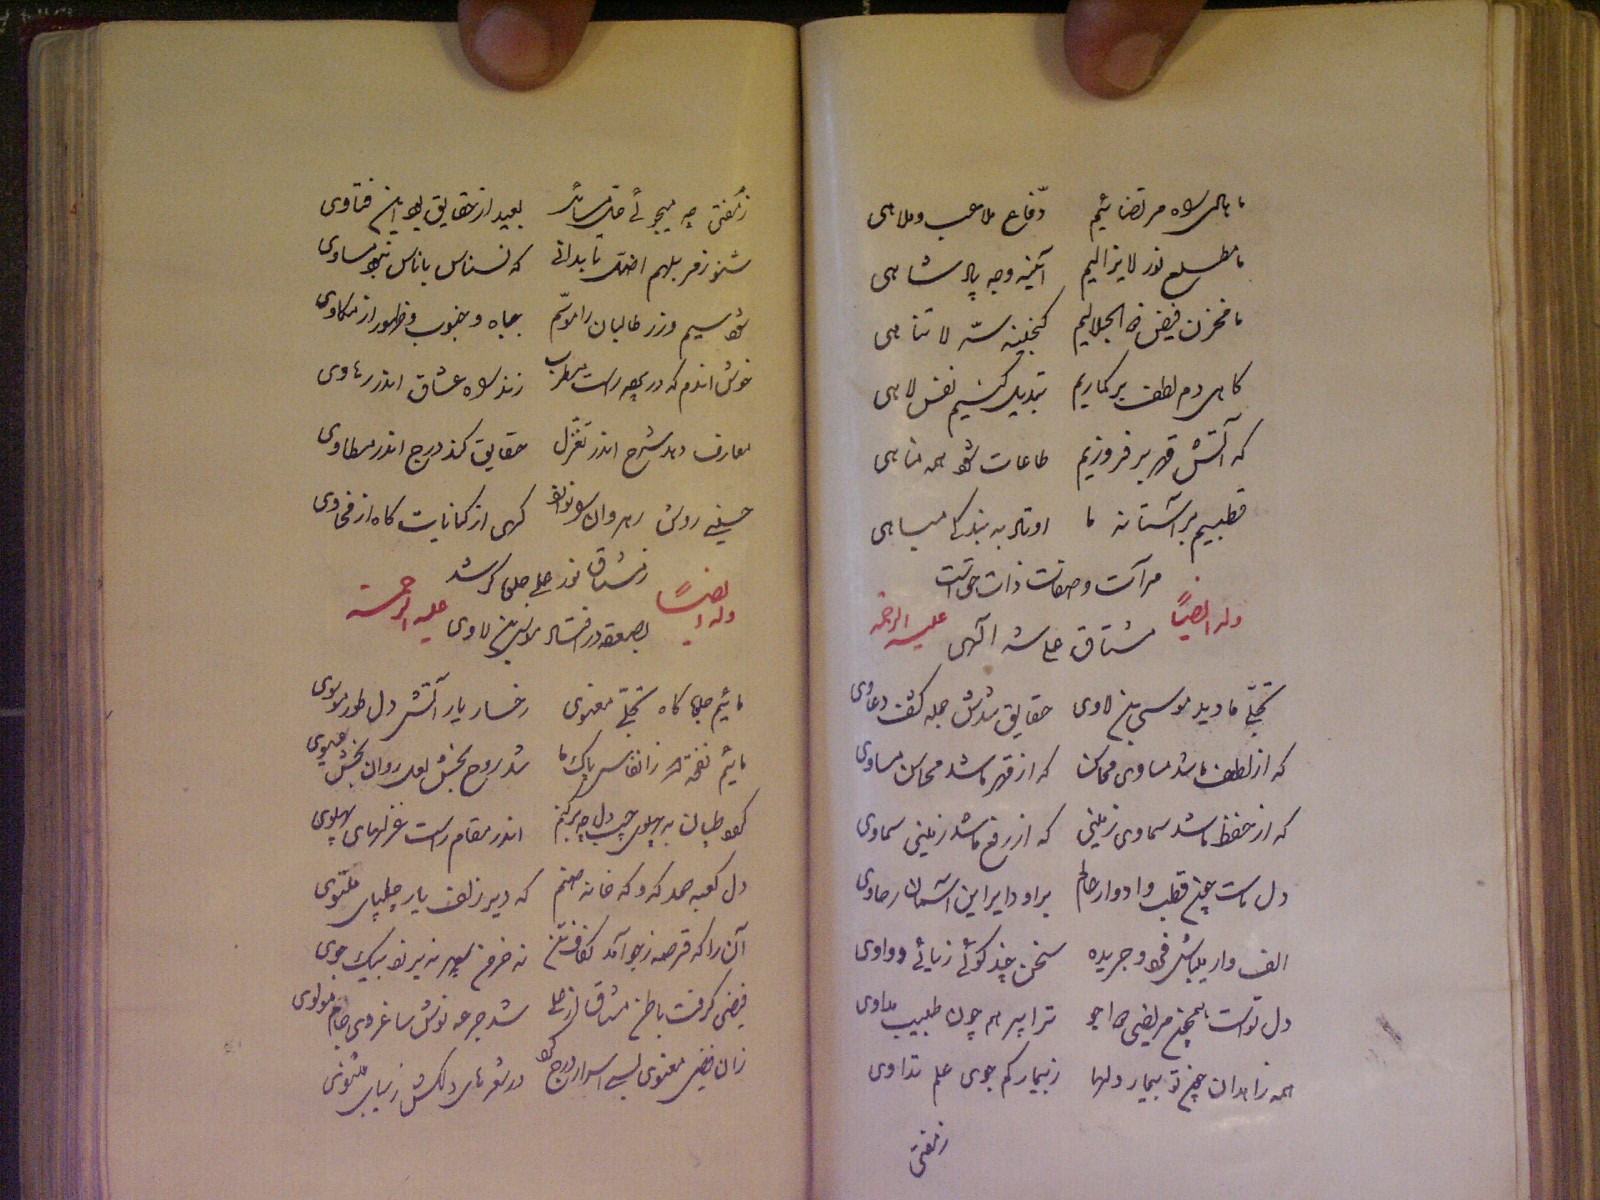 ما بالای سراه مرتضائیم دفاع ملاعب و ملاهی
ما مطلع نور لایزالیم آئینه وجه پادشاهی
ما مخزن فیض ذو الجلالیم گنجینه سرّ لا تناهی
گاهی دم لطف برگماریم تبدیل کنیم نفس لاهی
که آتش قهر بر فروزیم طاعات شود همه مناهی
قطبیم بر آستانه ما اوتاد به بندگی مباهی
مرآت و صفات ذات حق است
مشتاق علی شه الهی
وله ایضاً علیه الرحمه
تجلّی ما دید موسی بن لاوی حقایق شدش جمله کشف دعاوی
که از لطف ما شد مساوی محاسن که از قهر ما شد محاسن مساوی
که از حفظ ما شد سماوی زمینی که از رفع ما شد زمینی سماوی
دل ماست چون قطب و ادوار عالم بر او دایر این آسمان رحاوی
الف وار میباش فرد و جریده سخن چند گوئی زیائی و واوی
دل تواست همچون مریضی دواجو ترا پیر هم چون طبیب مداوی
همه زاهدان چون تو بیمار دلها ز بیمار کم جوی علم تداوی
ز مفتی
ز مفتی چه میجوئی حل مسائل بعید از حقایق بود این فتاوی
شنو رمز بلهم اضل تا بدانی که نسناس با ناس نبود مساوی
شود سیم و زر طالبان را موسّم جباه و جنوب و ظهور از مکاوی
خوش آندم که در پرده راست مطرب زند راه عشاق اندر رهاوی
معارف دهد شرح اندر تغزل حقایق کند درج اندر مطاوی
حسینی روش رهروان را نوازد گهی از کنایات گاه از فحاوی
ز مشتاق نور علی جلوه گر شد
بصعقه در افتاد موسی بن لاوی
وله ایضاً علیه الرحمة
مائیم جلوه گاه تجلّی معنوی رخسار یار آتش و دل طور موسوی
مائیم نفخه ز انفاس پاک ما شد روح بخش لعل روان بخش عیسوی
کوه طپان به پهلوی چپ دل چو برکنم اندر مقام راست غزلهای پهلوی
دل کعبه صمد که و که خانه صنم که دیر زلف یار چلیپای ملتوی
آن را که قرصه ز جو آمد کفاف تن نه خرمن سپهر نیرزد بیک جوی
فیضی گرفت باطن مشتاق از علی شد جرعه نوش ساغری از جام مولوی
زان فیض معنوی بسی اسرار درج کرد در شعرهای دلکش زیبای مثنوی